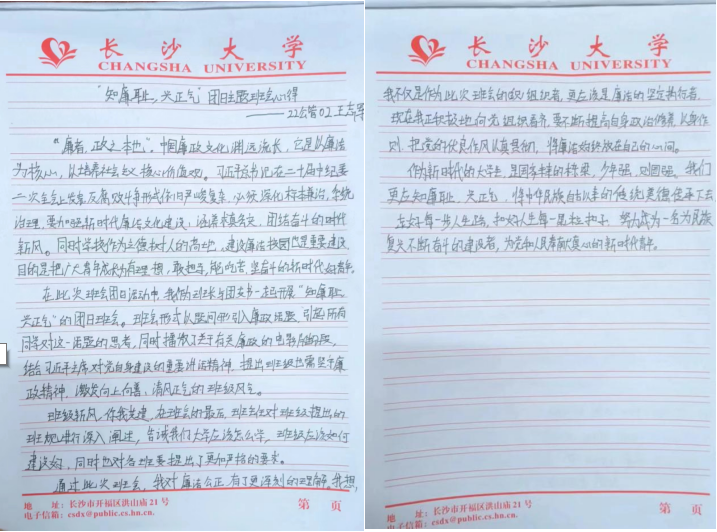 长沙大学
CHANGSHA UNIVERSITY
"知廉耻、兴正气"团日主题班会心得
——22公管02 王志
"廉者,政之本也"。中国廉政文化渊远流长,它是以廉洁
为核心,以培养社会主义核心价值观。习近平总书记在二十届中纪委
二次全会上发表反腐败斗争形势依旧严峻复杂,必须深化标本兼治,系统
治理,要加强新时代廉洁文化建设,逐渐求真务实,团结奋斗的时代
新风。同时学校作为立德树人的高地,建设廉洁校园也是重要建设
目的是把广大青年成长为有理想、敢担当、能吃苦、坚奋斗的新时代好青年。
在此次班会团日活动中,我作为班长与团支书一起开展"知廉耻、
兴正气"的团日班会。班会形式以提问形引入廉政话题,引起所有
同学对这一话题的思考,同时播放了关于有关廉政的电影片断,
结合习近平主席对党自身建设的重要讲话精神,提出班级也需坚守廉
政精神,激发向上向善,清风正气的班级风气。
班级新风,你我共建,在班会的最后,班主任对班级提出的
班规进行深入阐述,告诫我们大学应该怎么学,班级应该如何
建设好,同时也对各班委提出了更加严格的要求。
通过此次班会,我对廉洁公正有了更深刻的理解。我想,
地 址:长沙市开福区洪山庙21号
电子信箱:csdx@public.cs.hn.cn.
第 页
长沙大学
CHANGSHA UNIVERSITY
我不仅是作为此次班会的组织者,更应该是廉洁的坚定执行者。
现在我正积极地向党组织靠齐,要不断提高自身政治修养,以身作
则,把党的优良作风认真贯彻,将廉洁始终放在自己的心间。
作为新时代的大学生,是国家未来的栋梁,少年强,则国强。我们
更应知廉耻、兴正气,将中华民族自古以来的传统美德传承下去
走好每一步人生路,扣好人生每一是粒扣子,努力成为一名为民族
复兴不断奋斗的建设者,为党和人民奉献爱心的新时代青年。
地 址:长沙市开福区洪山庙21号
电子信箱:csdx@public.cs.hn.cn.
第 页